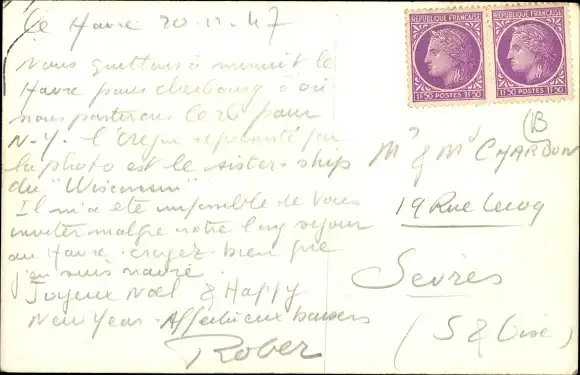 Le Havre 20-12-47
Nous quittons à minuit le
Havre pour cherbourg d'où
nous partirons le 26 pour
N-Y. l'oregon représenté par
la photo est le sister-ship
du "Wisconsin"
Il m'a ete impossible de vous
inviter malgre notre long sejour
au Havre. croyez bien que
j'en suis navré.
Joyeux Noël & Happy
New Year. Affectueux baisers
Rober
REPUBLIQUE FRANÇAISE
1F50 POSTES 1F50
REPUBLIQUE FRANÇAISE
1F50 POSTES 1F50
B
Mr & Me CHARDON
19 Rue Lecoq
Sevres
(S & Oise)